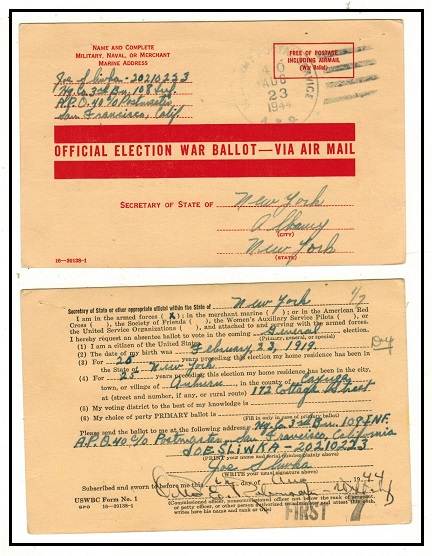 NAME AND COMPLETE
MILITARY, NAVAL, OR MERCHANT
MARINE ADDRESS
Joe Sliwka - 20210223
Hq. Co. 3rd Bn. 108 Inf.
A.P.O. 40 c/o Postmaster
San Francisco, Calif.
AUG
23
1944
A.P.O.
FREE OF POSTAGE
INCLUDING AIRMAIL
(War Ballot)
OFFICIAL ELECTION WAR BALLOT—VIA AIR MAIL
SECRETARY OF STATE OF New York
Albany
(CITY)
New York
(STATE)
16—39138-1
Secretary of State or other appropriate official within the State of New York
I am in the armed forces (X); in the merchant marine ( ); or in the American Red
Cross ( ), the Society of Friends ( ), the Women's Auxiliary Service Pilots ( ), or
United Service Organizations ( ), and attached to and serving with the armed forces.
I hereby request an absentee ballot to vote in the coming General election.
(Primary, general, or special)
(1) I am a citizen of the United States.
(2) The date of my birth was February 23, 1919.
(3) For 25 years preceding this election my home residence has been in
the State of New York
(4) For 25 years preceding this election my home residence has been in the city,
town, or village of Auburn, in the county of Cayuga
at (street and number, if any, or rural route) 172 Cottage Street
(5) My voting district to the best of my knowledge is
(6) My choice of party PRIMARY ballot is
(Fill in only in case of primary ballot)
Please send the ballot to me at the following address: Hq. Co. 3rd Bn. 108 INF.
A.P.O. 40 c/o Postmaster, San Francisco, California
JOE SLIWKA - 20210223
(PRINT your name and serial number plainly above)
Joe Sliwka
(WRITE your usual signature above)
Subscribed and sworn to before me this day of Aug 1944
(Commissioned officer, noncommissioned officer not below the rank of sergeant,
or petty officer, or other person authorized to administer and attest this oath,
writes here his name and rank or title)
USWBC Form No. 1
GPO 16—39138-1
FIRST 7